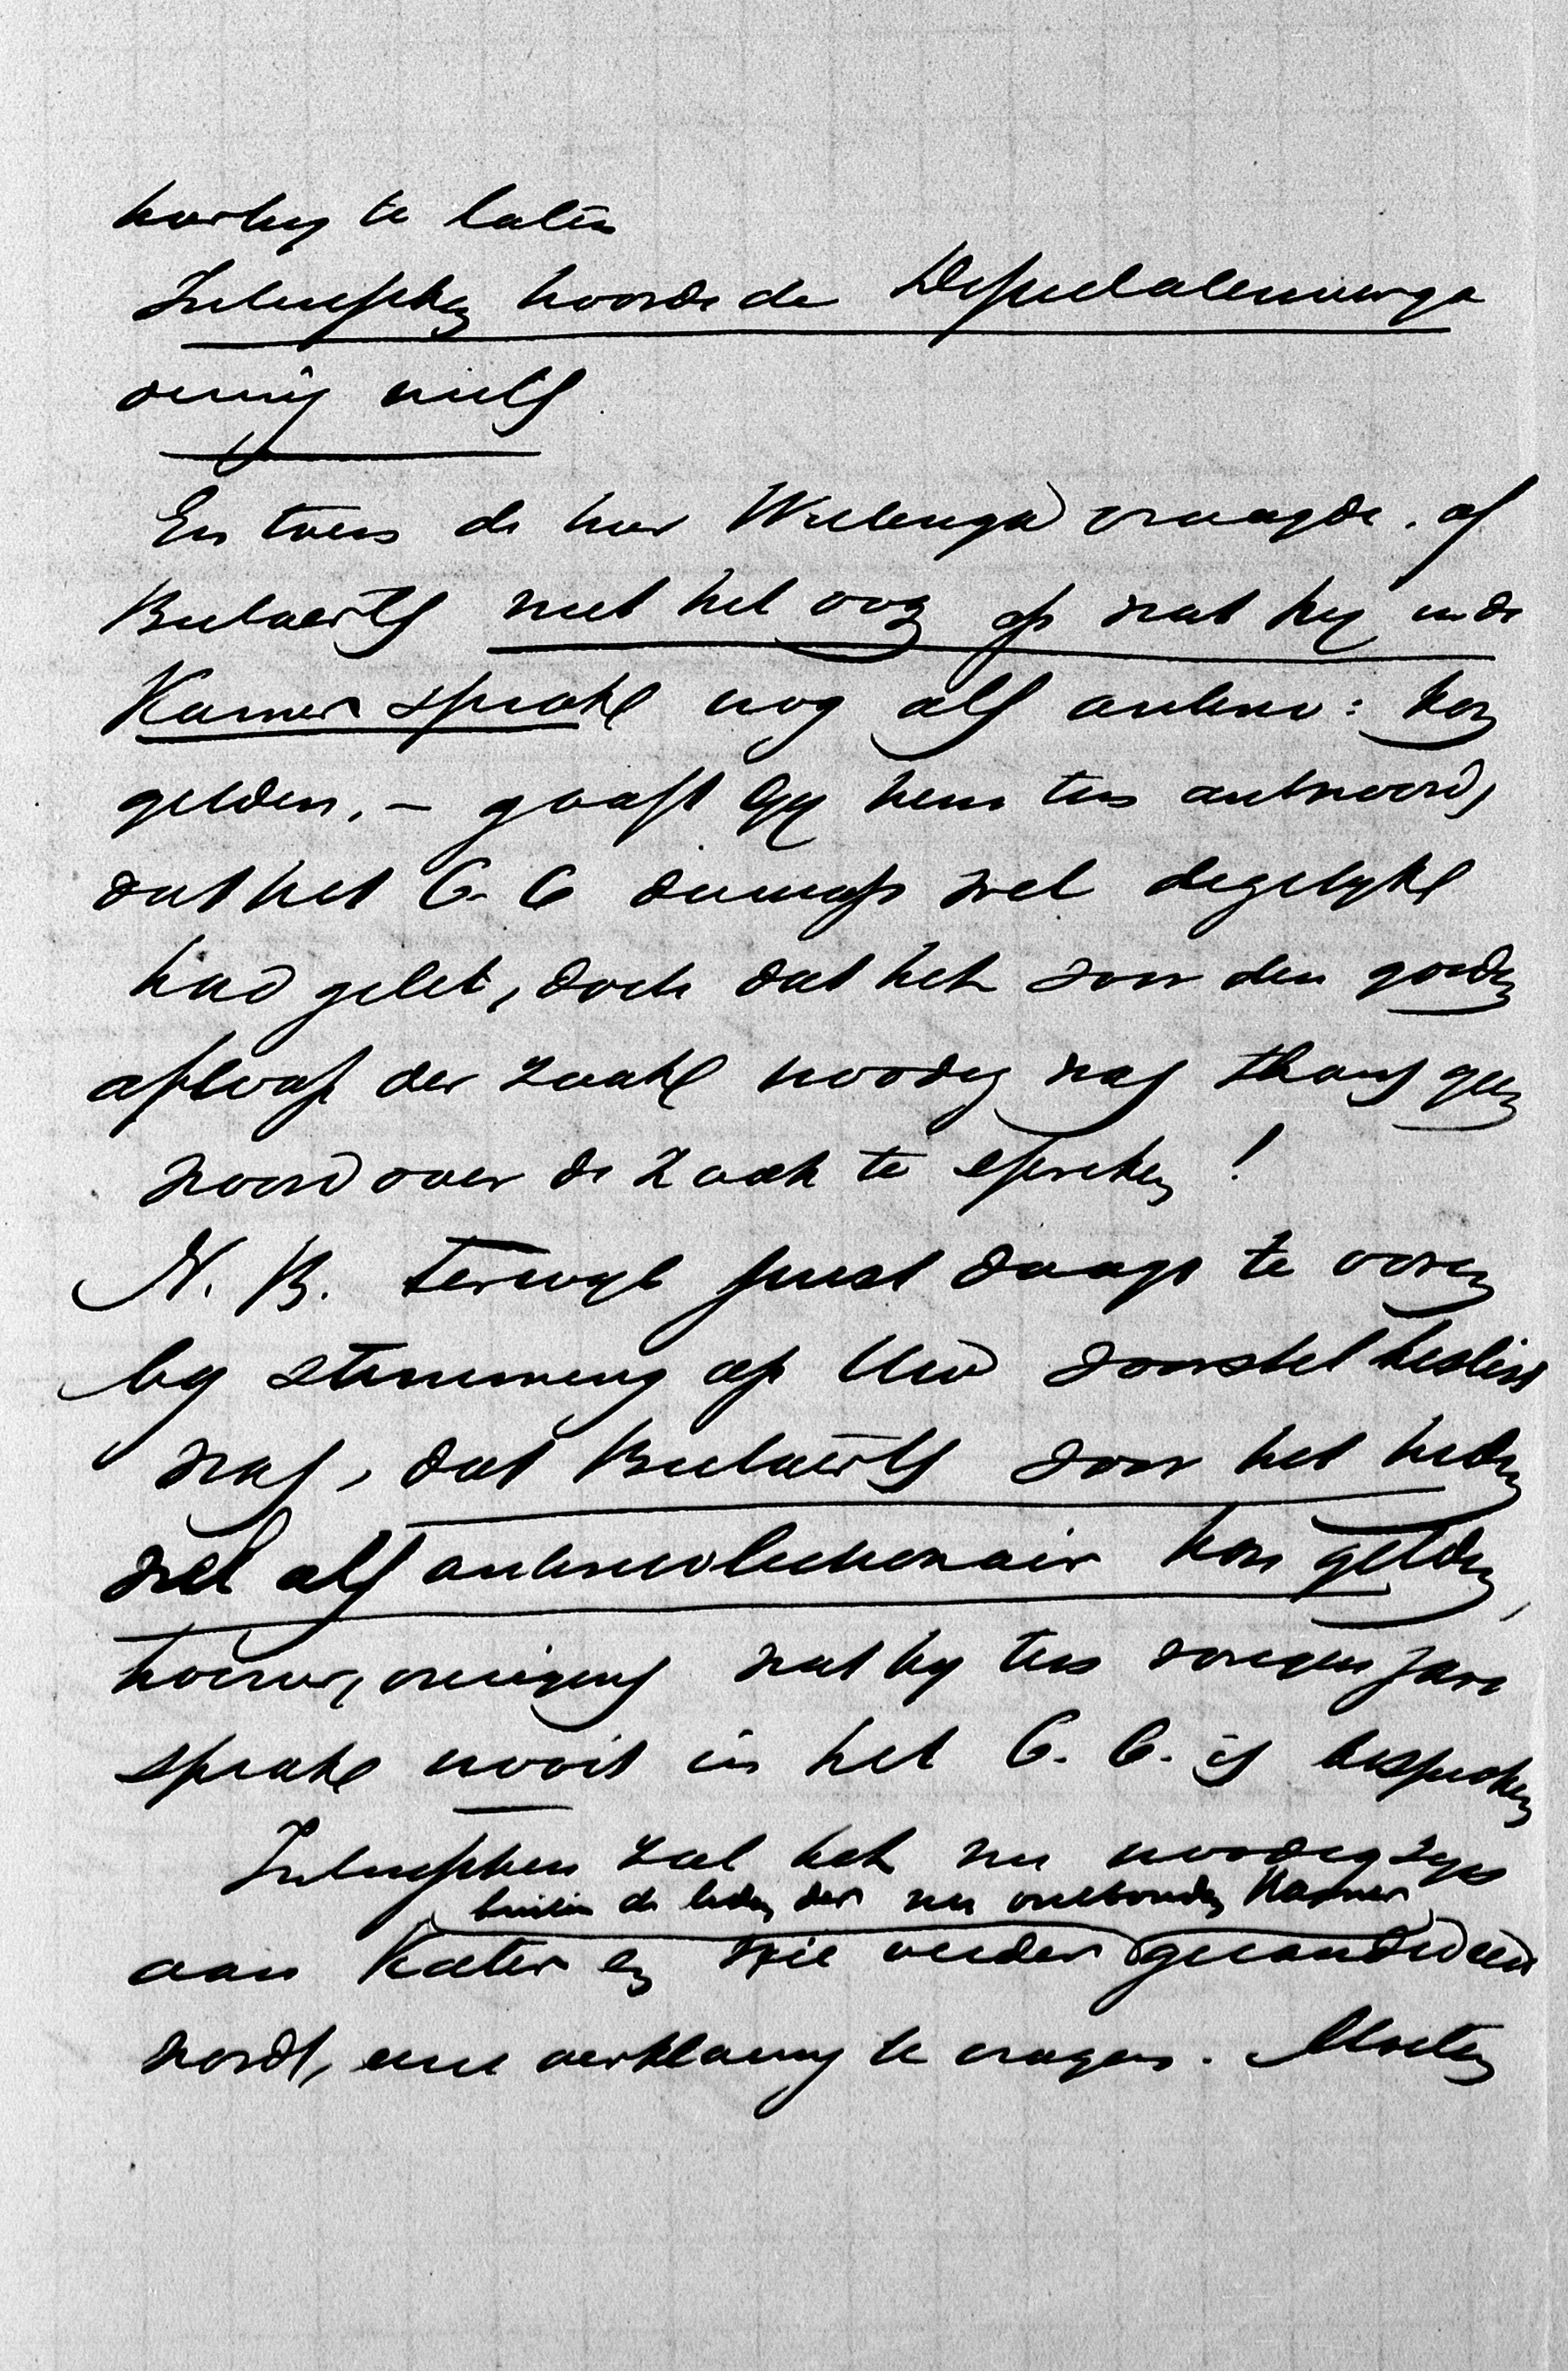 te laten
Intusschen hoorde de Deputatenverga
dering niets
En toen de heer Wielenga vraagde, of
Beelaerts met het oog op wat hij in de
Kamer sprak nog als antirev: kon
gelden, – gaaft Gij hem ten antwoord,
dat het C. C. daarop wel degelijk
had gelet, doch dat het voor den goeden
afloop der zaak noodig was thans geen
woord over de zaak te spreken!
N. B. Terwijl juist daags te voren
bij stemming op Uw voorstel beslist
was, dat Beelaerts voor het heden
wel als antirevolutionair kon gelden,
overigens wat hij ten vorigen jare
sprak nooit in het C. C. is besproken
Intusschen zal het nu noodig zijn
buiten de leden der nu ontbonden Kamer
aan Kater en wie verder gecandideerd
wordt, eene verklaring te vragen. Moeten